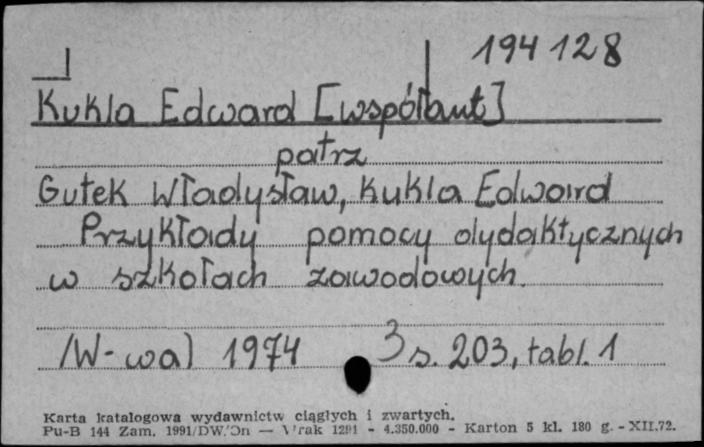 194 128
Kukla Edward [współaut]
patrz
Gutek Władysław, Kukla Edward
Przykłady pomocy dydaktycznych
w szkołach zawodowych.
/W-wa) 1974 s. 203, tabl. 1
Karta katalogowa wydawnictw ciągłych i zwartych.
Pu-B 144 Zam. 1991/DW/On — 1291 - 4.350.000 - Karton 5 kl. 180 g. - XII.72.